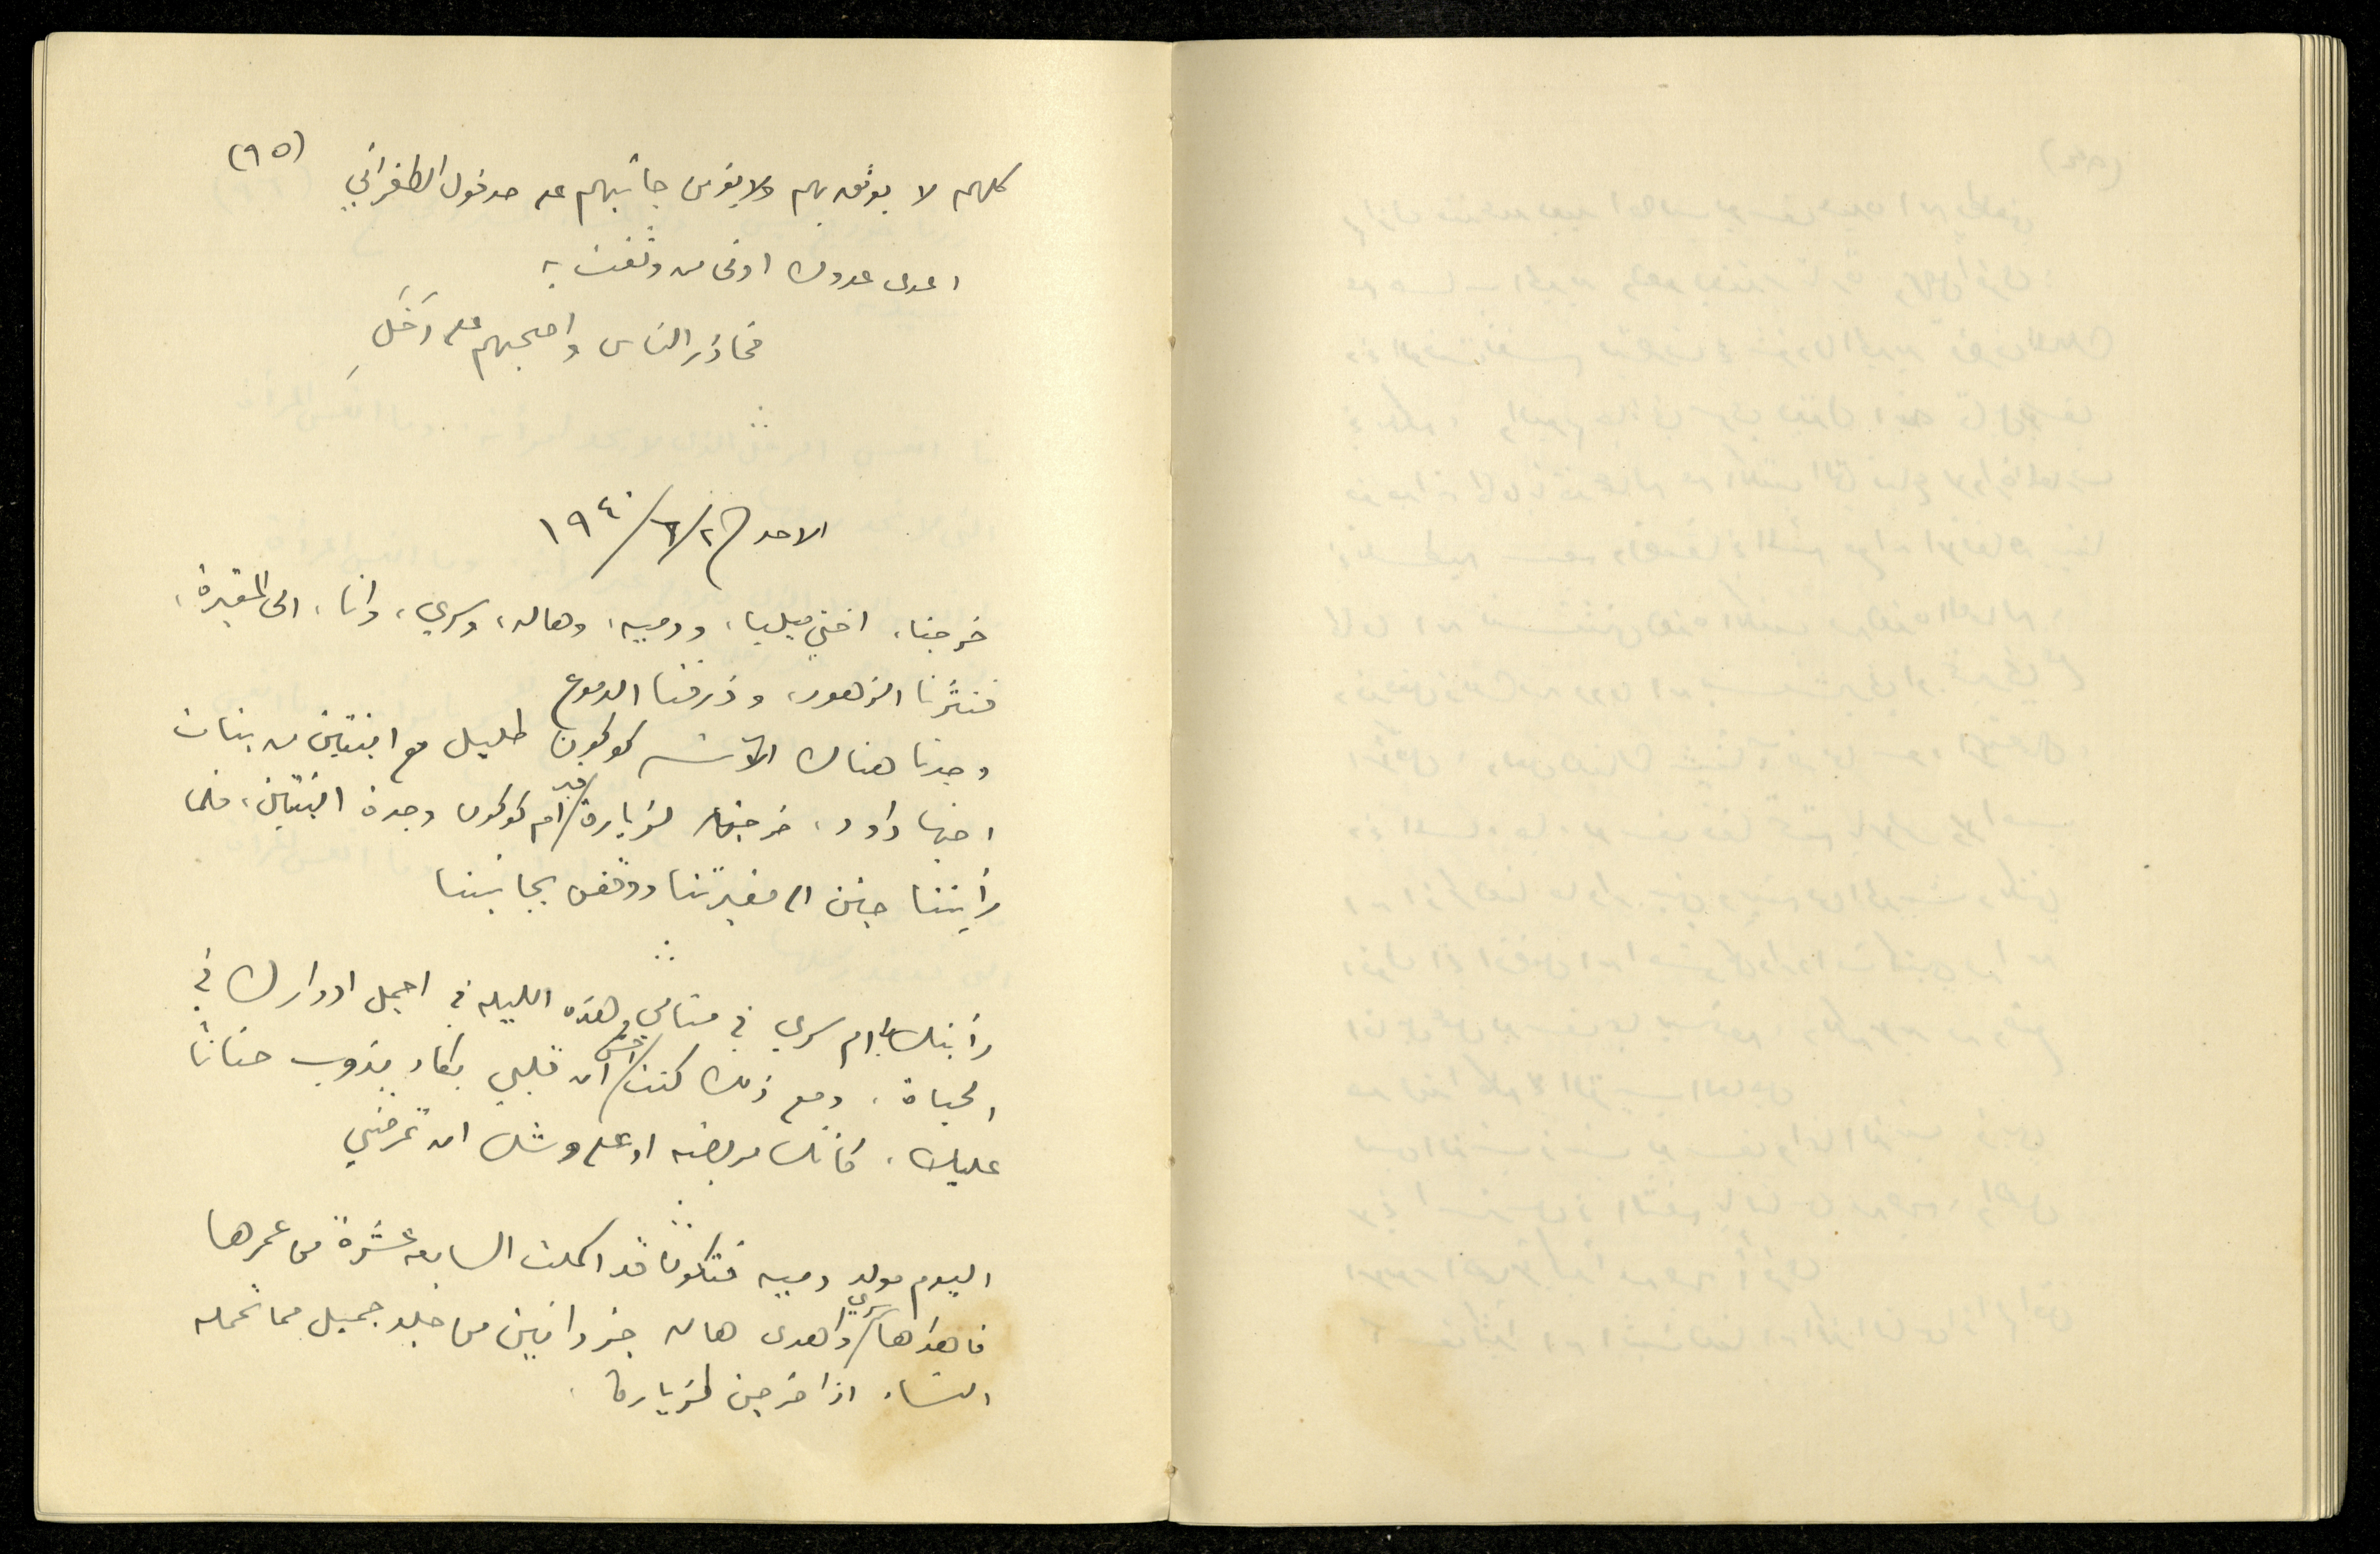 (٩٥)
كلهم لا يوثق بهم ولا يؤمن جانبهم على حد قول الطغرائي
اعدى عدوك ادنى من وثقت به
فحاذر الناس واصحبهم على دَخَلِ
الاحد ٢/٦/١٩٤٠
خرجنا، اختي ميليا، ودميه، وهاله، وسري، وانا، الى المقبرة،
فنثرنا الزهور، وذرفنا الدموع
وجدنا هناك الآنسه كوكبون طليل مع ابنتين من بنات
اخيها داود، خرجن لزيارة قبر ام كوكبون وجدة البنتين، فلما
رأيننا جئن الى مقبرتنا ووقفن بجانبنا
رأيتك يا ام سري في منامي هذه الليله في اجمل ادوارك في
الحياة، ومع ذلك كنت احس ان قلبي يكاد يذوب حنانا
عليك، كأنك مريضه او على وشك ان تمرضي
اليوم مولد دميه فتكون قد اكملت السابعة عشرة من عمرها
فاهداها سري واهدى هاله جزدانين من جلد جميل مما تحمله
النساء اذا خرجن لزيارة.